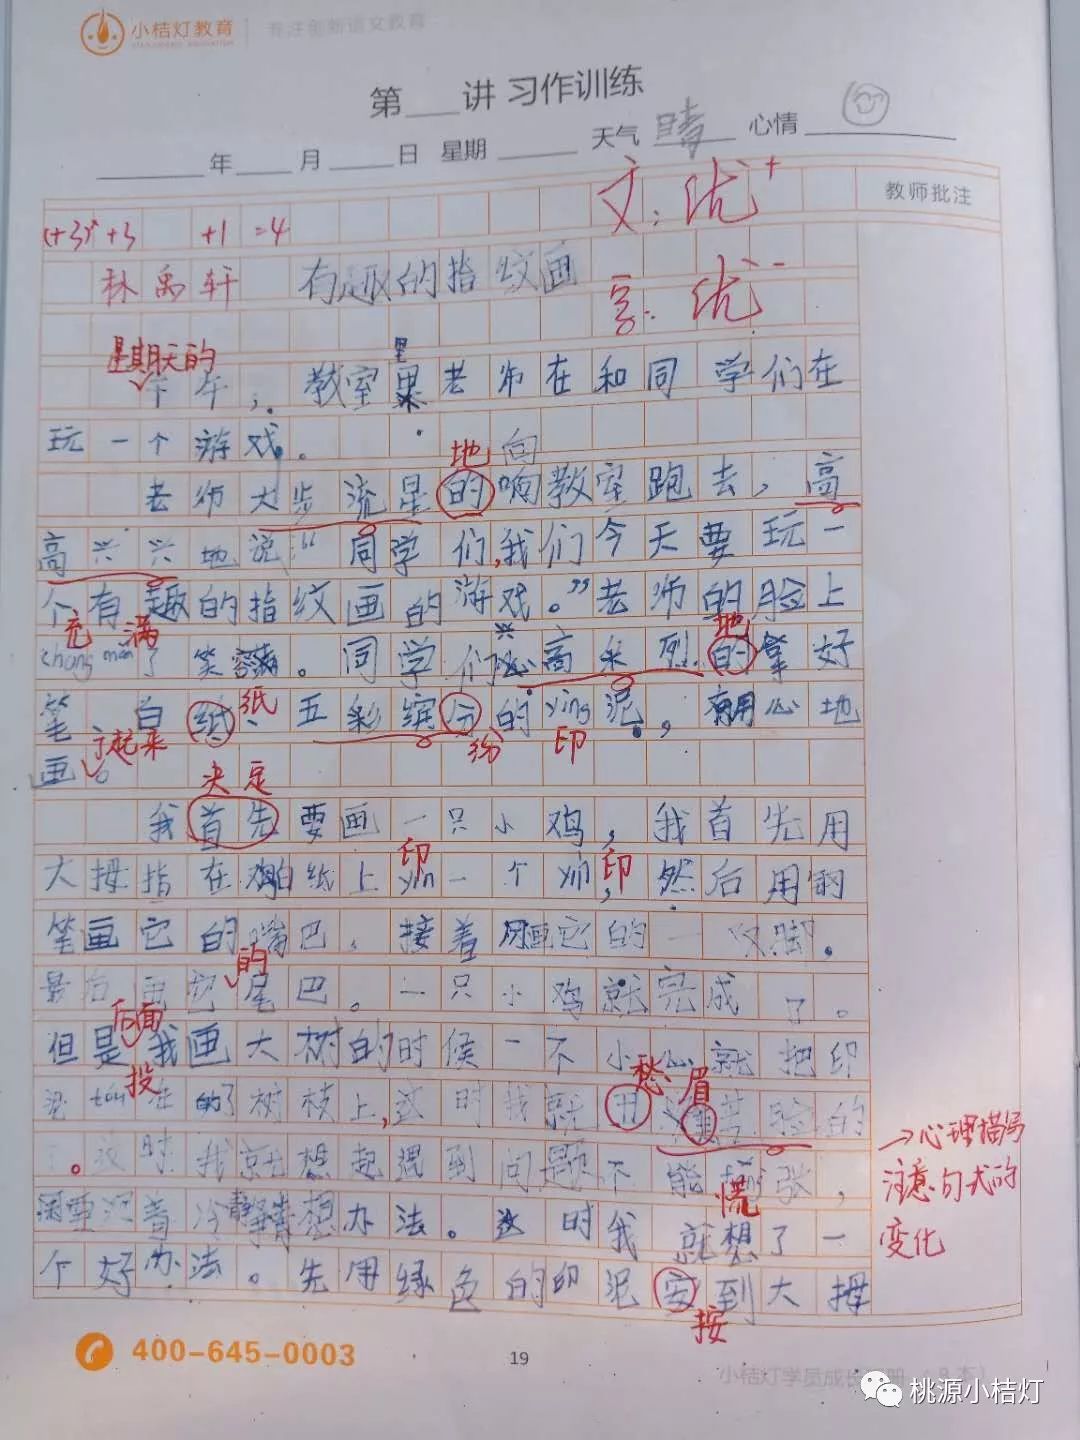 小桔灯教育 专注创新语文教育
第 讲 习作训练
年 月 日 星期 天气 晴 心情
教师批注
文:优+
(+3)+3 +1 =4
林禹轩 有趣的指纹画
字:优-
星期天的 里
下午,教室里老师在和同学们在
玩一个游戏。
地 向
老师大步流星的响教室跑去,高
高兴兴地说:“同学们,我们今天要玩一
个有趣的指纹画的游戏。”老师的脸上
充满 兴 地
chong man了笑容。同学们高采烈的拿好
笔 白纸、五彩缤分的ying泥,用心地
纸 纷 印
画。
了起来
决定
我首先要画一只小鸡,我首先用
印 印
大拇指在白纸上yin一个yin,然后用钢
笔画它的嘴巴,接着用画它的一双脚。
的
最后画它尾巴。一只小鸡就完成了。
后面
但是我画大树的时候一不小心就把印
投 愁 眉
泥tou在了树枝上,这时我就苦脸的
。这时我就想起遇到问题不能张,
慌
要沉着冷静想办法。这时我就想了一
个好办法。先用绿色的印泥安到大拇
按
→心理描写
注意句式的
变化
400-645-0003
19
小桔灯学员成长手册
桃源小桔灯